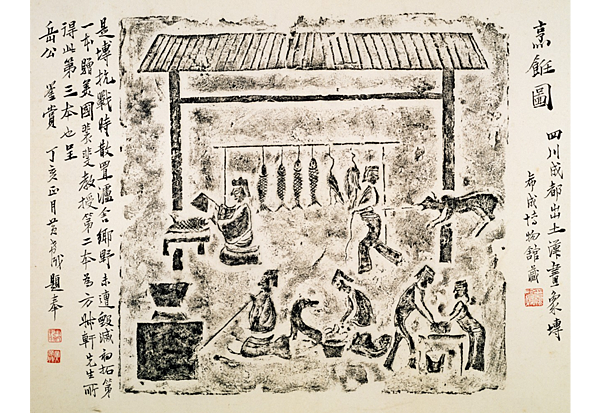 烹飪圖
四川成都出土漢畫象塼
希成博物館藏
是塼抗戰時散置瀘合鄉野未遭毀滅初拓第
一本贈美國裴斐教授第二本為方
軒先生所
得此第三本也呈
岳公 鉴賞 丁亥正月黃希成題奉